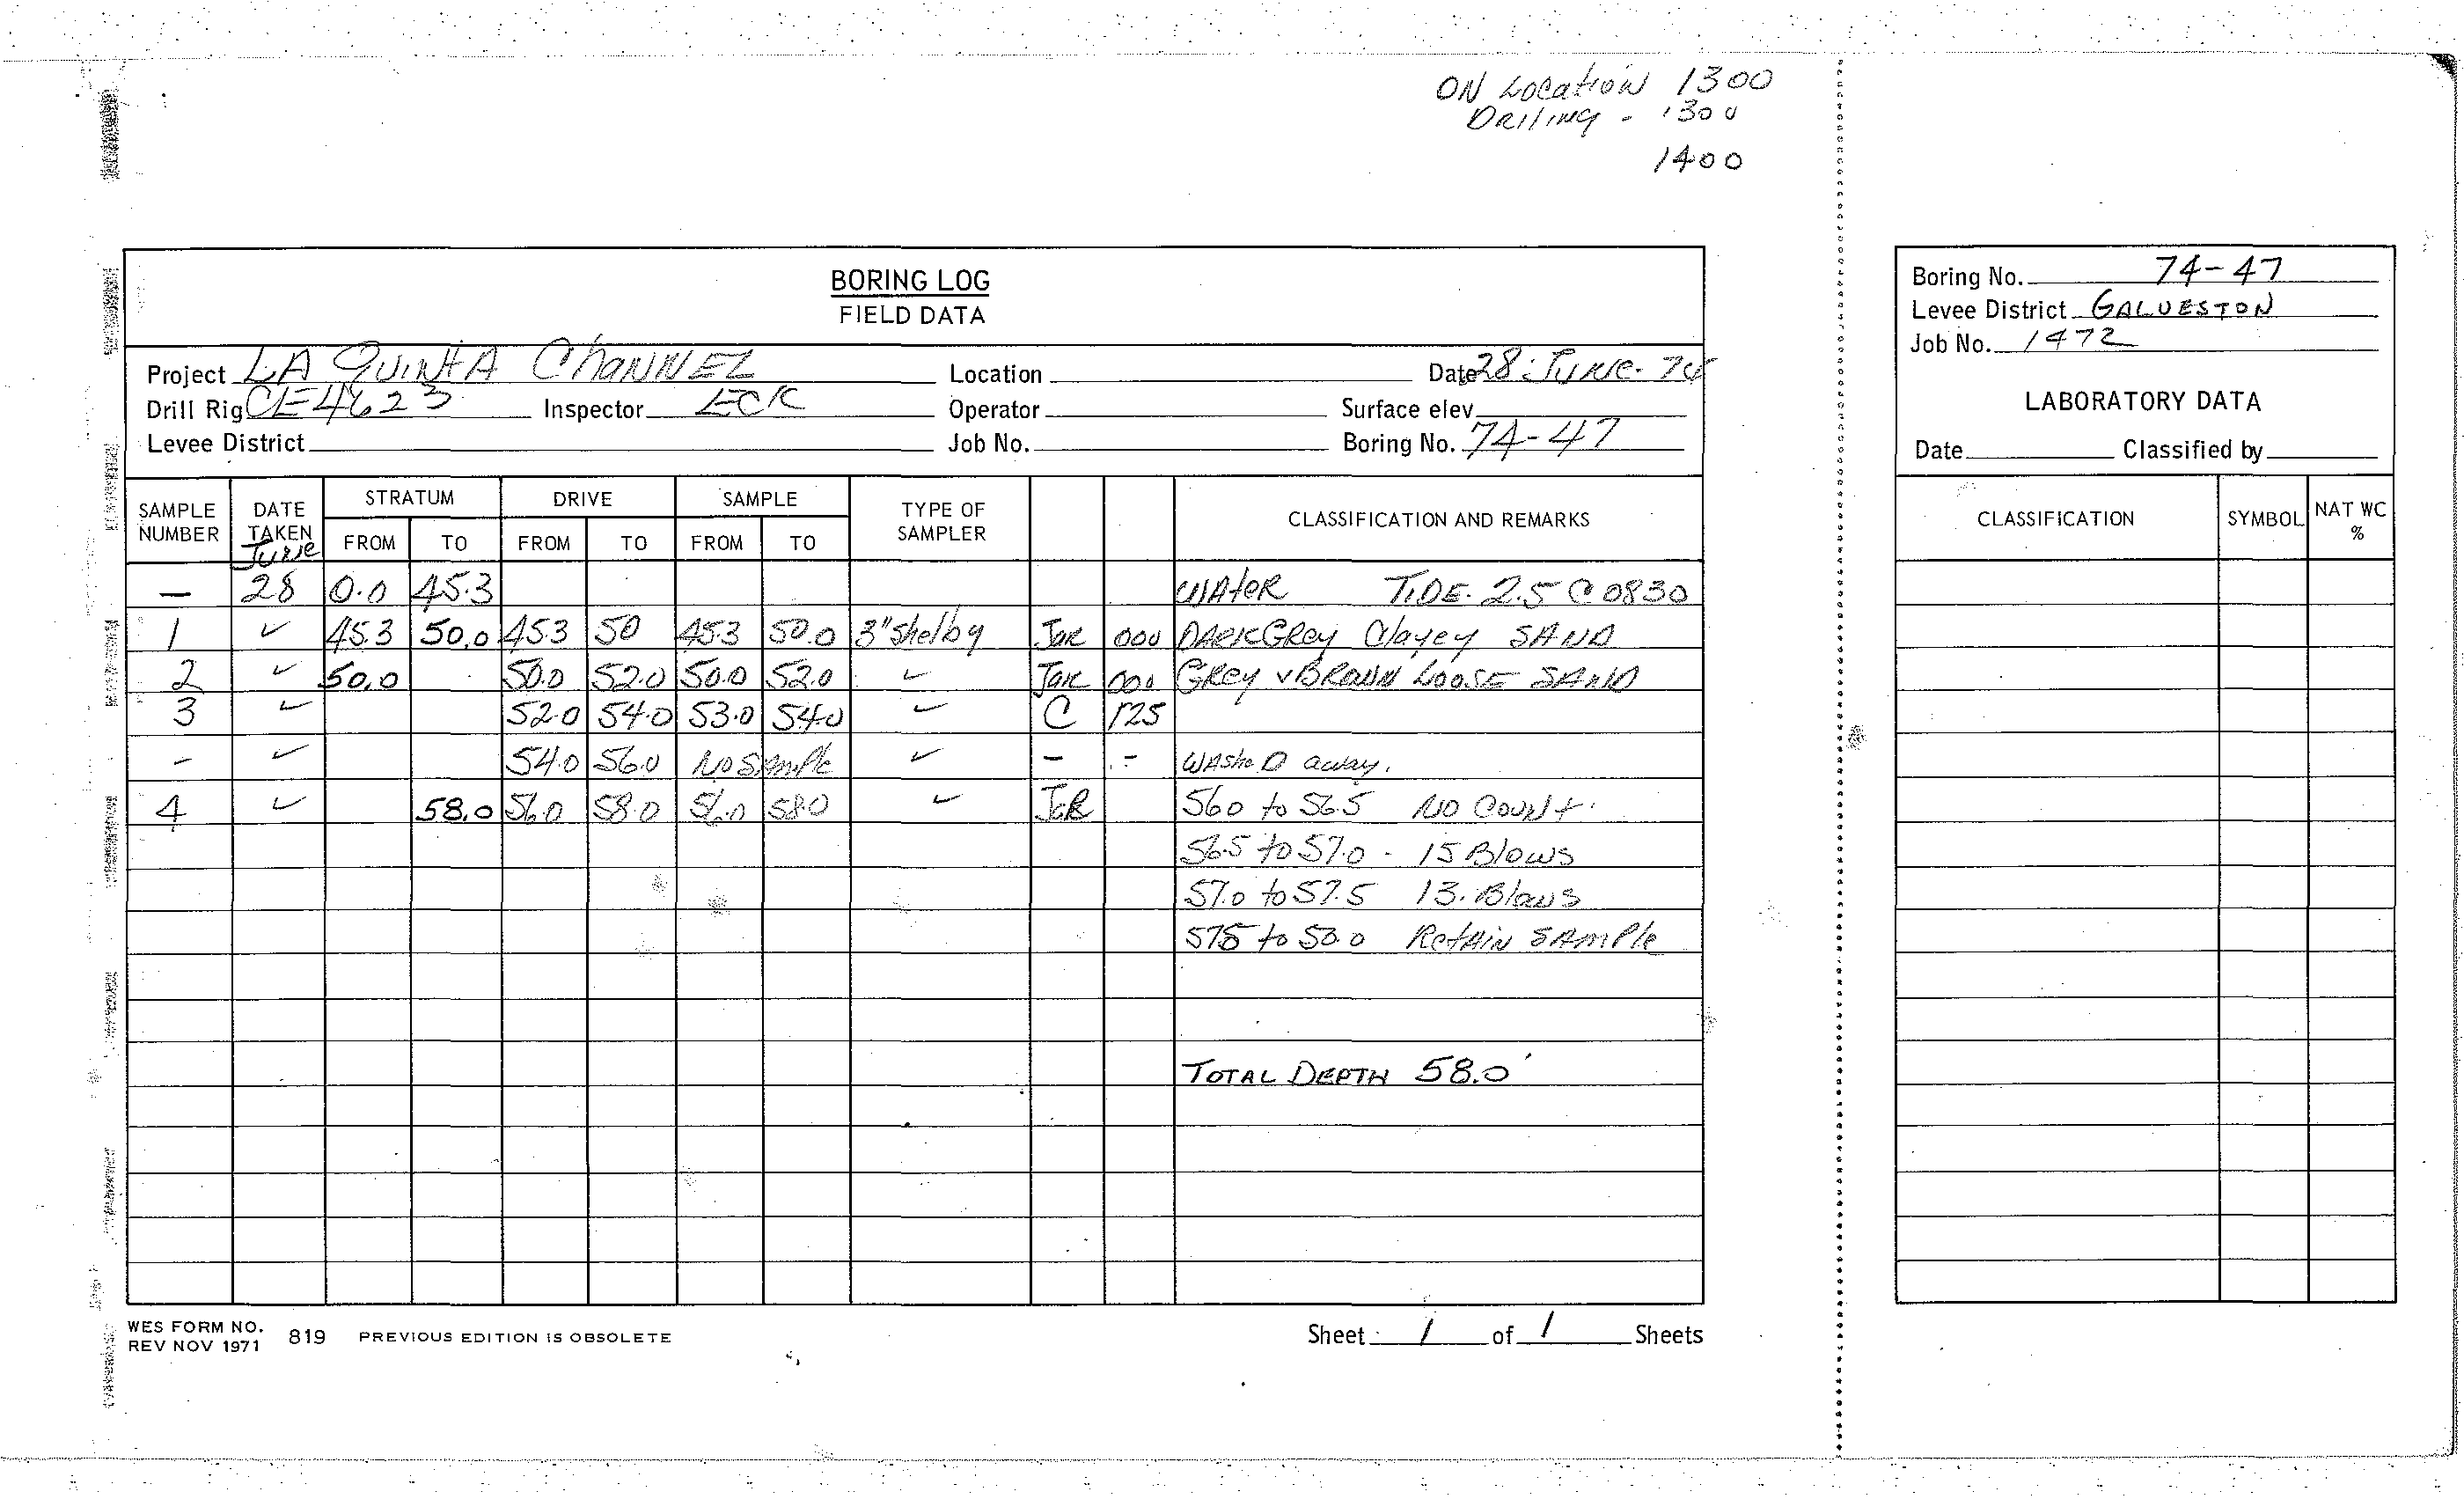 ON Location 1300
Drilling - 1300
1400
BORING LOG
FIELD DATA
Project LA QUINTA ChANNEL Location Date 28 JUNE. 74
Drill Rig CE4623 Inspector ECK Operator Surface elev.
Levee District Job No. Boring No. 74-47
SAMPLE NUMBER DATE TAKEN June STRATUM FROM TO DRIVE FROM TO SAMPLE FROM TO TYPE OF SAMPLER CLASSIFICATION AND REMARKS
— 28 0.0 45.3 WAteR TIDE. 2.5 @ 0830
1 ✓ 45.3 50.0 45.3 50 45.3 50.0 3" Shelby Jar 000 DARK GRey Clayey SAND
2 ✓ 50.0 50.0 52.0 50.0 52.0 ✓ Jar 000 GRey & BROWN LOOSE SAND
3 ✓ 52.0 54.0 53.0 54.0 ✓ C 125
– ✓ 54.0 56.0 NO SAmPle ✓ – – WAsheD away.
4 ✓ 58.0 56.0 58.0 56.0 58.0 ✓ JaR 560 to 56.5 NO Count.
56.5 to 57.0 - 15 Blows
57.0 to 57.5 13. Blows
575 to 58.0 RetAiN SAmPle
TOTAL DEPTH 58.0'
WES FORM NO. 819 PREVIOUS EDITION IS OBSOLETE
REV NOV 1971
Sheet 1 of 1 Sheets
Boring No. 74-47
Levee District GALVESTON
Job No. 1472
LABORATORY DATA
Date Classified by
CLASSIFICATION SYMBOL NAT WC %